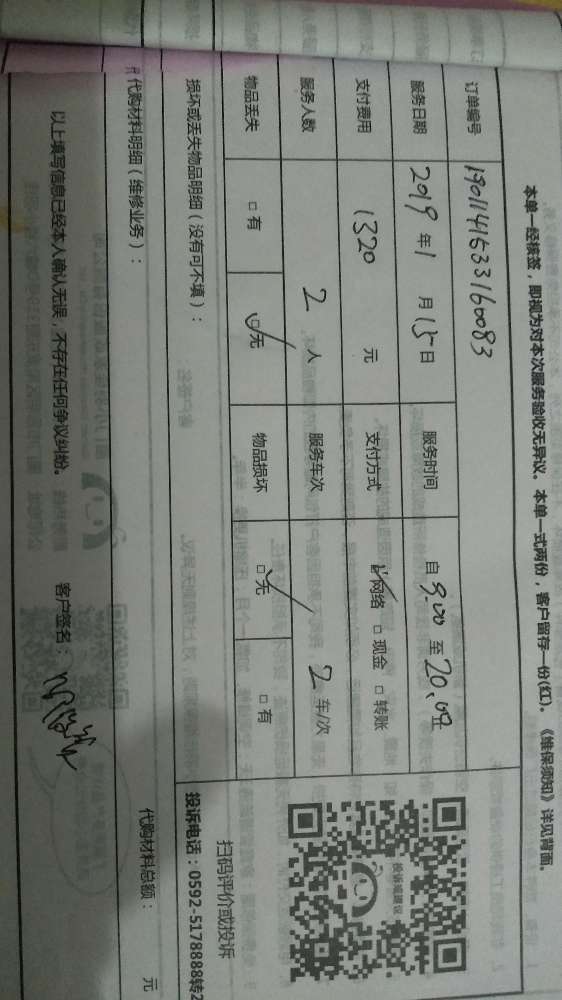 本单一经核签，即视为对本次服务验收无异议。本单一式两份，客户留存一份(红)。《维保须知》详见背面。
订单编号 1901141533160083
服务日期 2019 年 1 月 15 日 服务时间 自 9.00 至 20.00
支付费用 1320 元 支付方式 ☑网络 □ 现金 □ 转账
服务人数 2 人 服务车次 2 车/次
物品丢失 □ 有 ☑无 物品损坏 ☑无 □ 有
投诉建议
扫码评价或投诉
投诉电话：0592-5178888转2
损坏或丢失物品明细（没有可不填）：
代购材料明细（维修业务）：
代购材料总额： 元
以上填写信息已经本人确认无误，不存在任何争议纠纷。 客户签名：